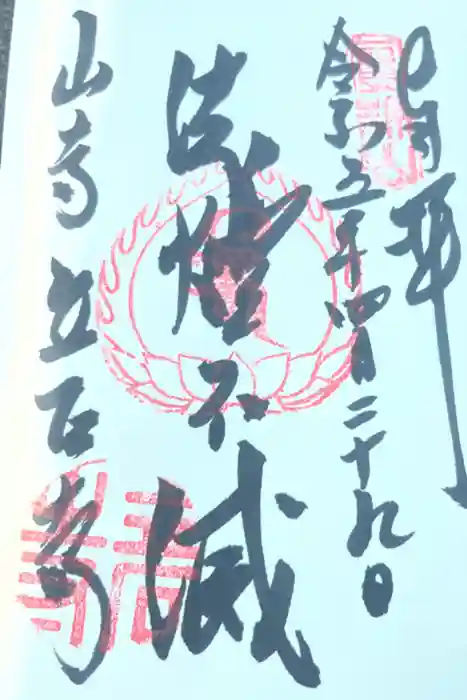 奉拝
令和五年四月二十九日
法燈不滅
山寺立石寺